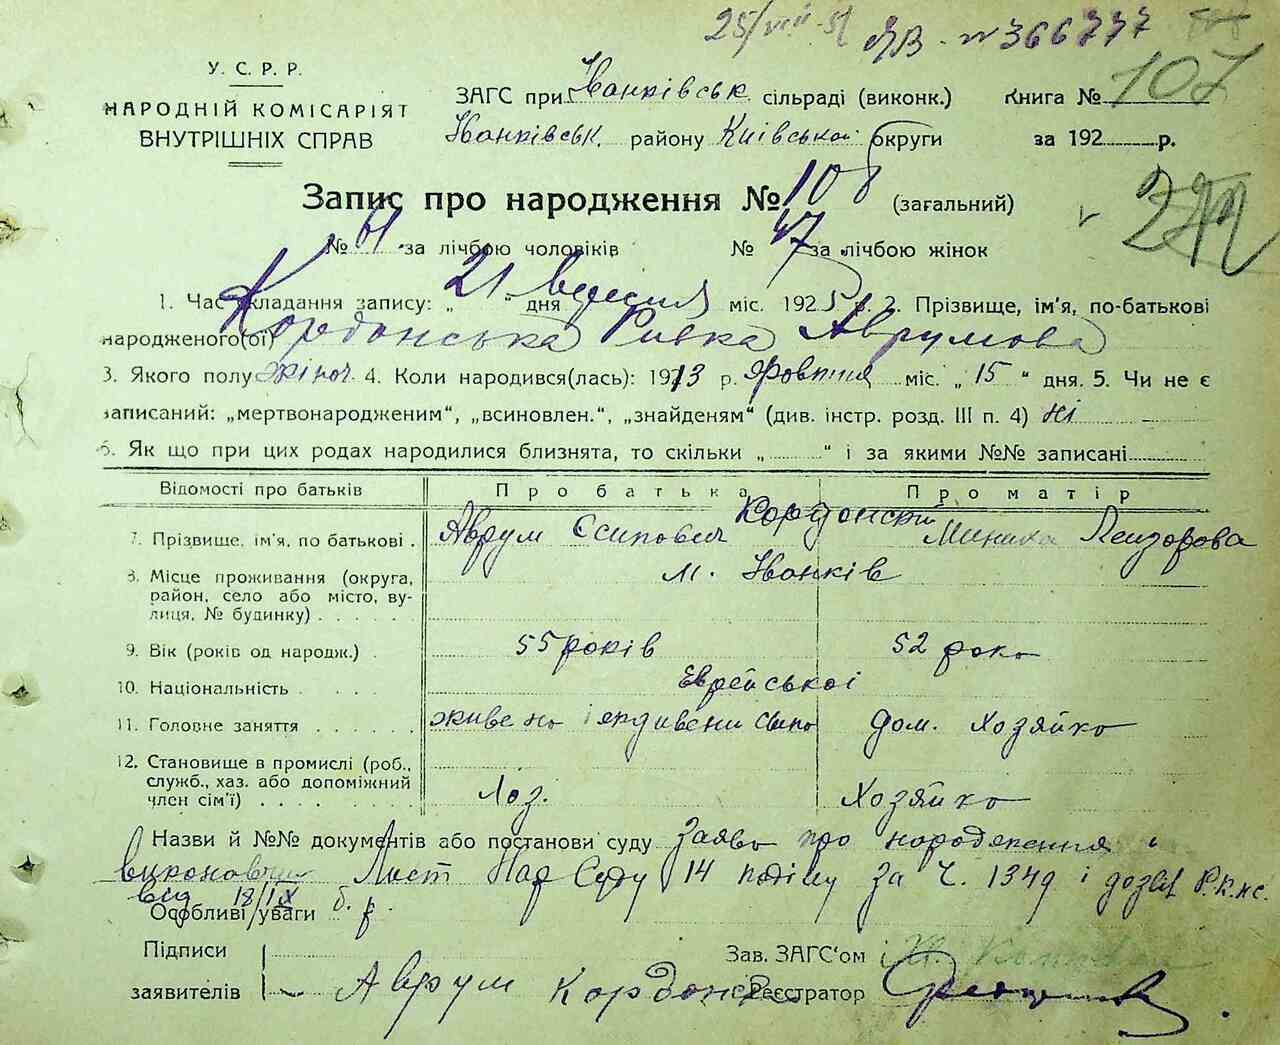 25/VIII-51 ЯВ - № 366777
У. С. Р. Р.
НАРОДНІЙ КОМІСАРІЯТ
ВНУТРІШНІХ СПРАВ
ЗАГС при Іванківськ сільраді (виконк.) Книга № 107
Іванківськ. району Київської округи за 192 р.
Запис про народження № 108 (загальний)
№ 61 за лічбою чоловіків № 47 за лічбою жінок
272
1. Час складання запису: „ 21 “ дня вересня міс. 1925 р. 2. Прізвище, ім'я, по-батькові
народженого(ої) Кордонська Ривка Аврумова
3. Якого полу жіноч. 4. Коли народився(лась): 1913 р. жовтня міс. „ 15 “ дня. 5. Чи не є
записаний: „мертвонародженим“, „всиновлен.“, „знайденям“ (див. інстр. розд. III п. 4) ні
6. Як що при цих родах народилися близнята, то скільки „ “ і за якими №№ записані
Відомості про батьків Про батька Про матір
7. Прізвище, ім'я, по батькові . Аврум Єсипович Кордонські Миниха Лейзорова
8. Місце проживання (округа, район, село або місто, вулиця, № будинку) . . . . . м. Іванків
9. Вік (років од народж.) . 55 років 52 роки
10. Національність . . . . . Єврейської
11. Головне заняття . . . . . . живе на дом. хозяйка
12. Становище в промислі (роб., служб., хаз. або допоміжний член сім'ї) . . . . . . . Хоз. Хозяйка
Назви й №№ документів або постанови суду Заява про народження и
виконавчий Лист НарСуду 14 поділу за Ч. 1349 і дозвіл Р.К.НС.
від 18/IX б. р.
Особливі уваги
Підписи
заявителів Аврум Кордонск
Зав. ЗАГС'ом
Реєстратор